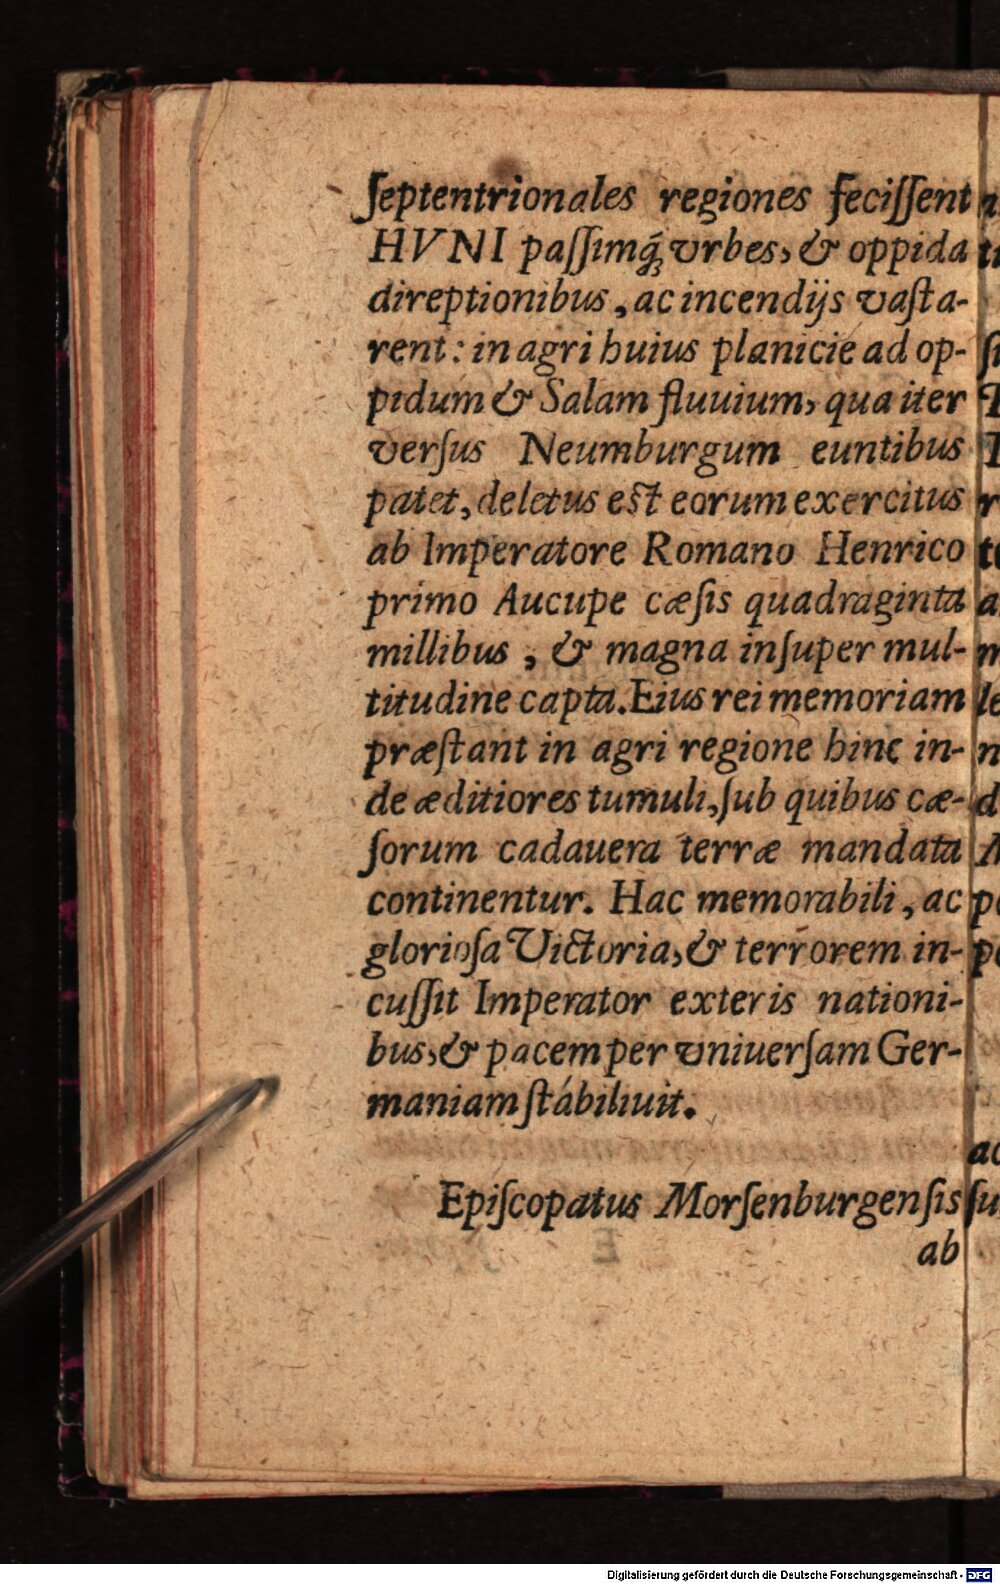 ſeptentrionales regiones feciſſent
HVNI paſſimq́; vrbes, & oppida
direptionibus, ac incendijs vaſta-
rent: in agri huius planicie ad op-
pidum & Salam fluuium, qua iter
verſus Neumburgum euntibus
patet, deletus eſt eorum exercitus
ab Imperatore Romano Henrico
primo Aucupe cæſis quadraginta
millibus, & magna inſuper mul-
titudine capta. Eius rei memoriam
præſtant in agri regione hinc in-
de æditiores tumuli, ſub quibus cæ-
ſorum cadauera terræ mandata
continentur. Hac memorabili, ac
glorioſa Victoria, & terrorem in-
cuſſit Imperator exteris nationi-
bus, & pacem per vniuerſam Ger-
maniam ſtábiliuit.
Epiſcopatus Morſenburgenſis
ab
Digitalisierung gefördert durch die Deutsche Forschungsgemeinschaft - DFG